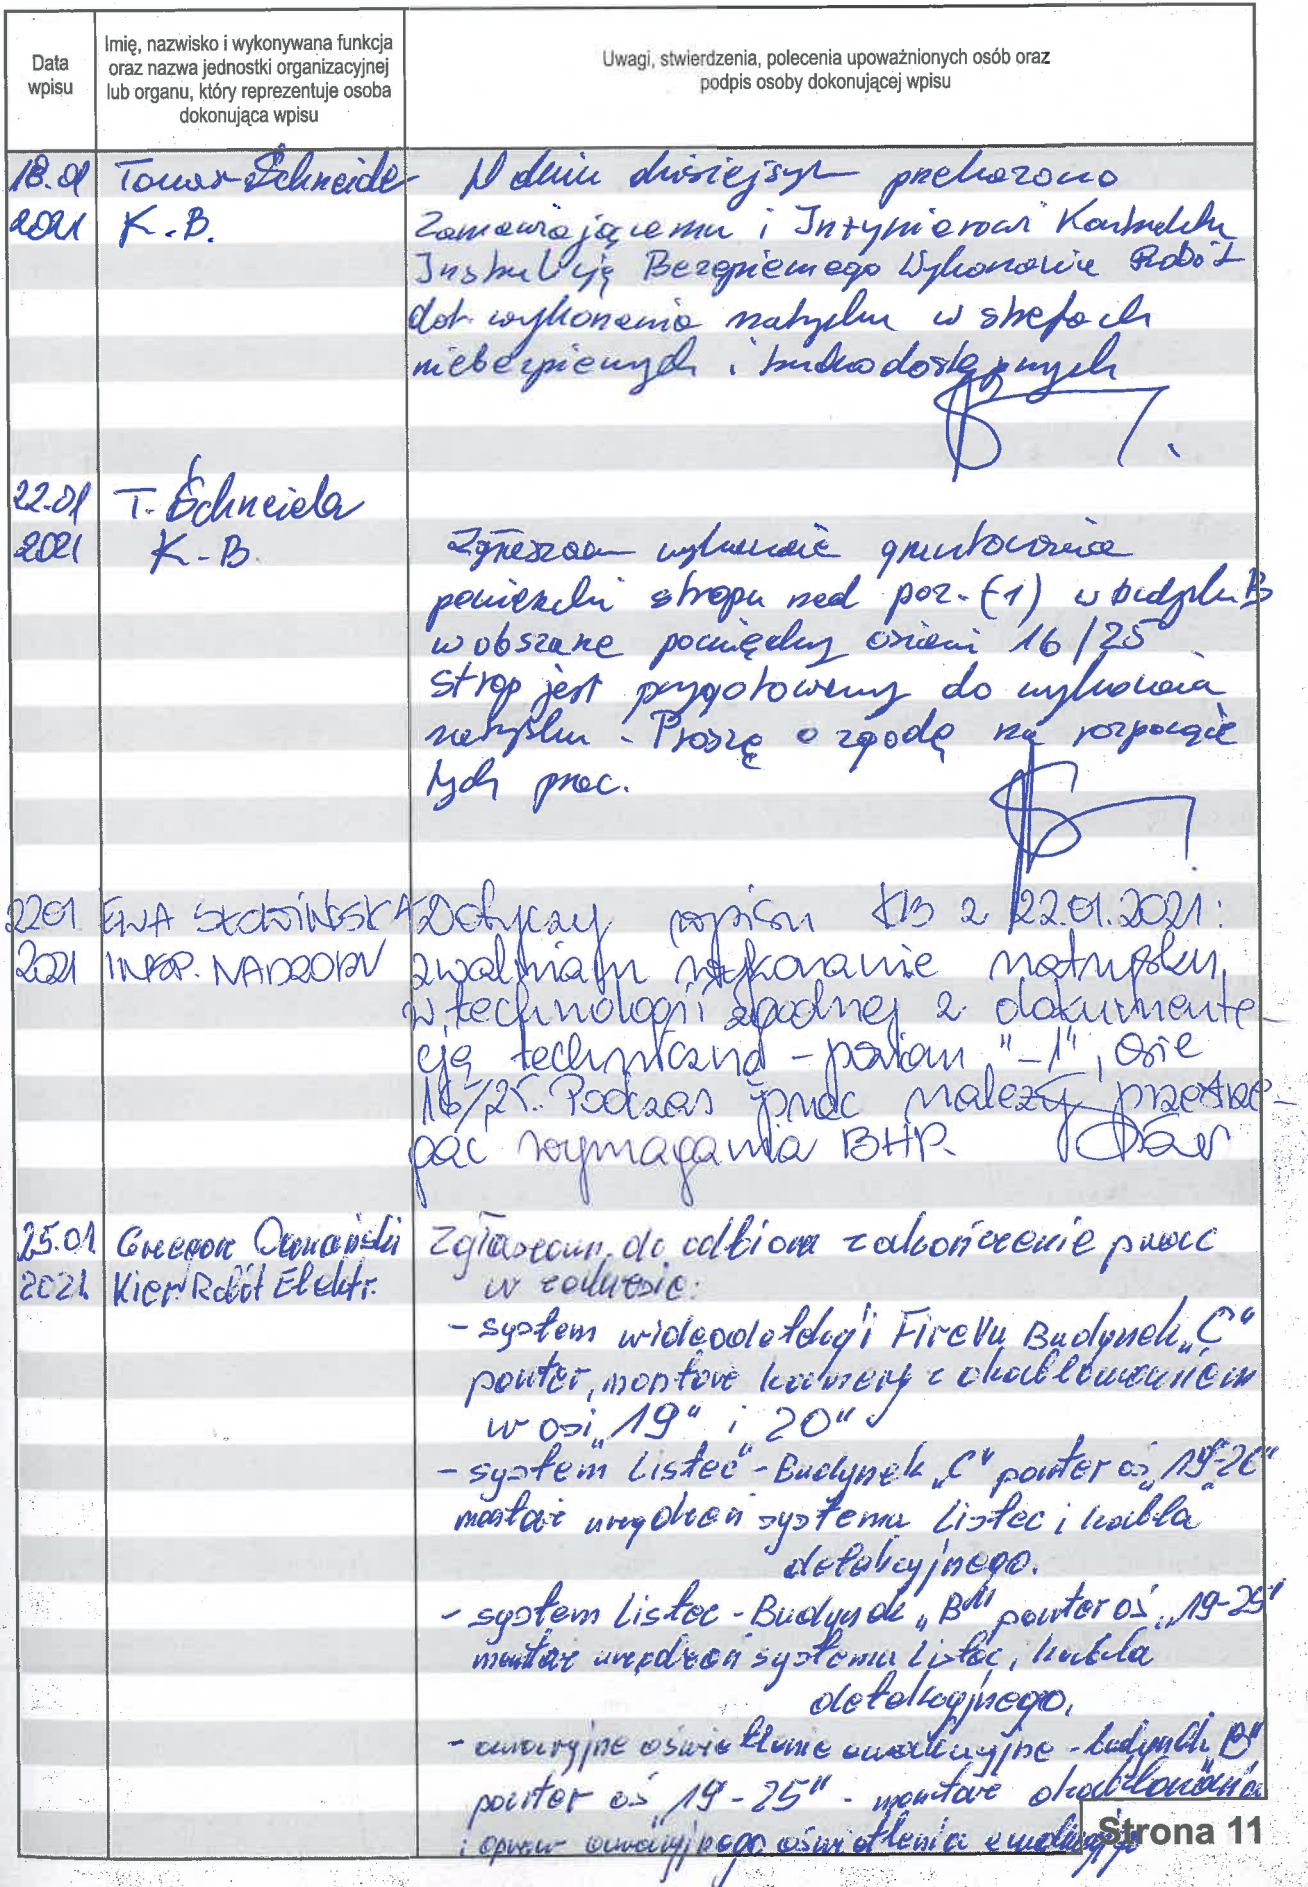 Data
wpisu
Imię, nazwisko i wykonywana funkcja
oraz nazwa jednostki organizacyjnej
lub organu, który reprezentuje osoba
dokonująca wpisu
Uwagi, stwierdzenia, polecenia upoważnionych osób oraz
podpis osoby dokonującej wpisu
18.01
2021
Tomasz Schneider
K.B.
W dniu dzisiejszym przekazano
Zamawiającemu i Inżynierowi Kontraktu
Instrukcję Bezpiecznego Wykonania Robót
dot. wykonania natrysku w strefach
niebezpiecznych i trudnodostępnych
22.01
2021
T. Schneider
K.B.
Zgłaszam wykonanie gruntowania
powierzchni stropu nad poz. (-1) w budynku B
w obszarze pomiędzy osiami 16/25
strop jest przygotowany do wykonania
natrysku - Proszę o zgodę na rozpoczęcie
tych prac.
22.01
2021
EWA SŁOWIŃSKA
INSP. NADZORU
Dotyczy wpisu KB z 22.01.2021:
zwalniam wykonanie natrysku,
w technologii zgodnej z dokumenta-
cją techniczną - poziom "-1", osie
16/25. Podczas prac należy przestrze-
gać wymagania BHP.
25.01
2021
Grzegorz
Kier. Robót Elektr.
Zgłaszam do odbioru zakończenie prac
w zakresie:
- system wideodetekcji FireVu Budynek „C"
parter, montaż kamery z okablowaniem
w osi „19" i „20"
- system Listec - Budynek „C" parter oś „19-26"
montaż urządzeń systemu Listec i kabla
detekcyjnego.
- system Listec - Budynek „B" parter oś „19-25"
montaż urządzeń systemu Listec, kabla
detekcyjnego,
- awaryjne oświetlenie ewakuacyjne - budynek „B"
parter oś „19-25" - montaż okablowania
i opraw awaryjnego oświetlenia ewakuacyjnego
Strona 11